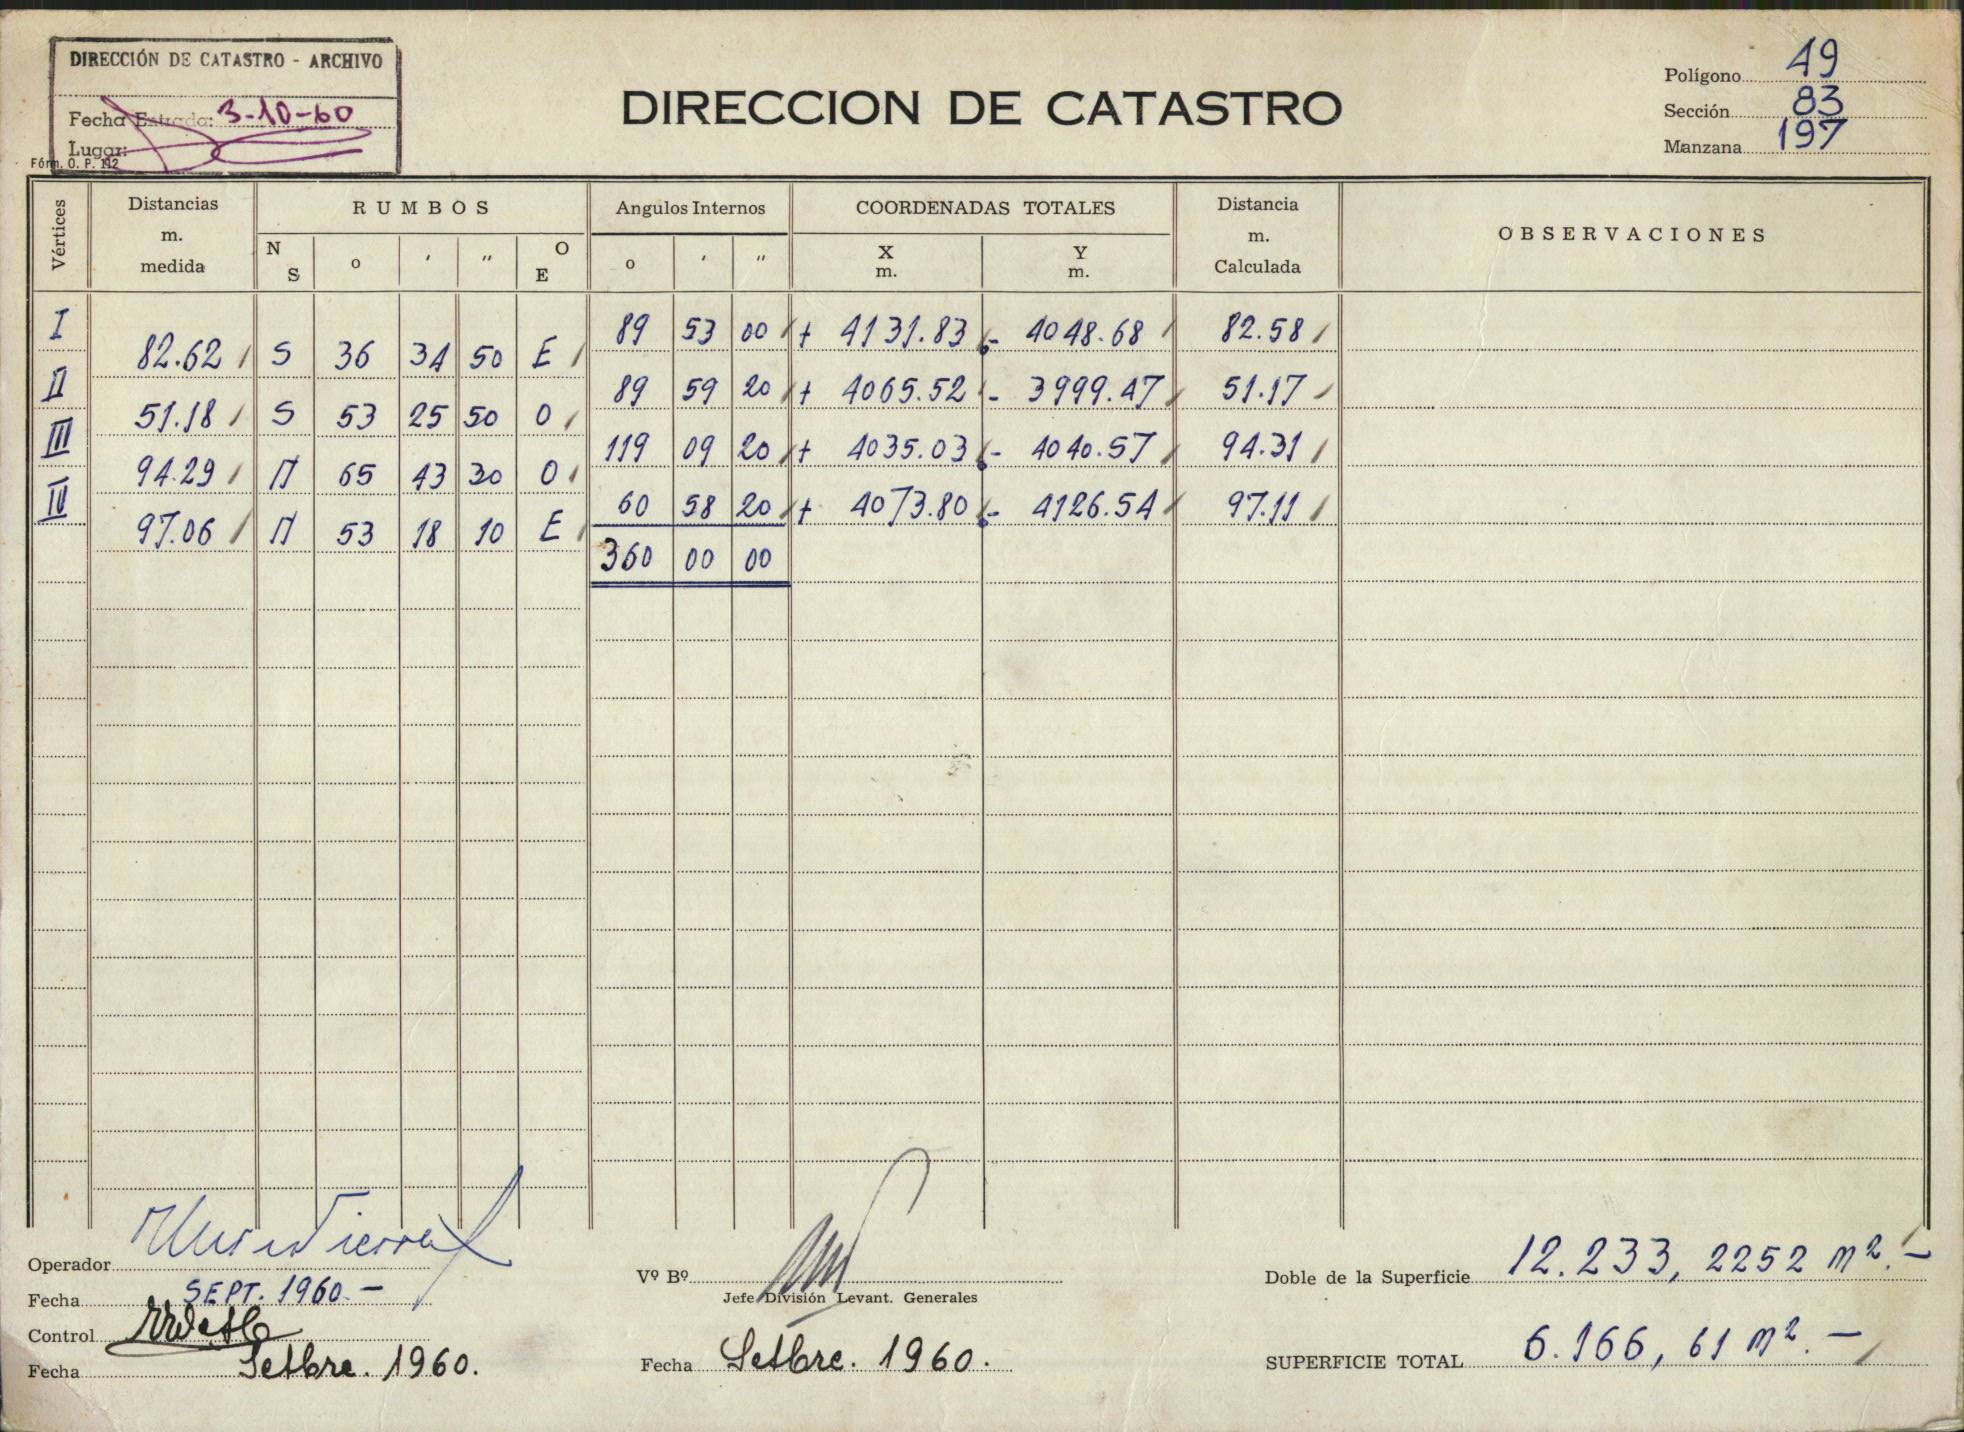 DIRECCIÓN DE CATASTRO - ARCHIVO
Fecha Entrada: 3-10-60
Lugar:
Fórm. O. P. 112
DIRECCION DE CATASTRO
Polígono 49
Sección 83
Manzana 197
Vértices
Distancias m. medida
RUMBOS
N S o ' " O E
Angulos Internos
o ' "
COORDENADAS TOTALES
X m. Y m.
Distancia m. Calculada
OBSERVACIONES
I 89 53 00 + 4131.83 - 4048.68 82.58
82.62 S 36 34 50 E
II 89 59 20 + 4065.52 - 3999.47 51.17
51.18 S 53 25 50 O
III 119 09 20 + 4035.03 - 4040.57 94.31
94.29 N 65 43 30 O
IV 60 58 20 + 4073.80 - 4126.54 97.11
97.06 N 53 18 10 E
360 00 00
Operador
Fecha SEPT. 1960.-
Control
Fecha Setbre. 1960.
Vº Bº
Jefe División Levant. Generales
Fecha Setbre. 1960.
Doble de la Superficie 12.233, 2252 m².-
SUPERFICIE TOTAL 6.166, 61 m².-